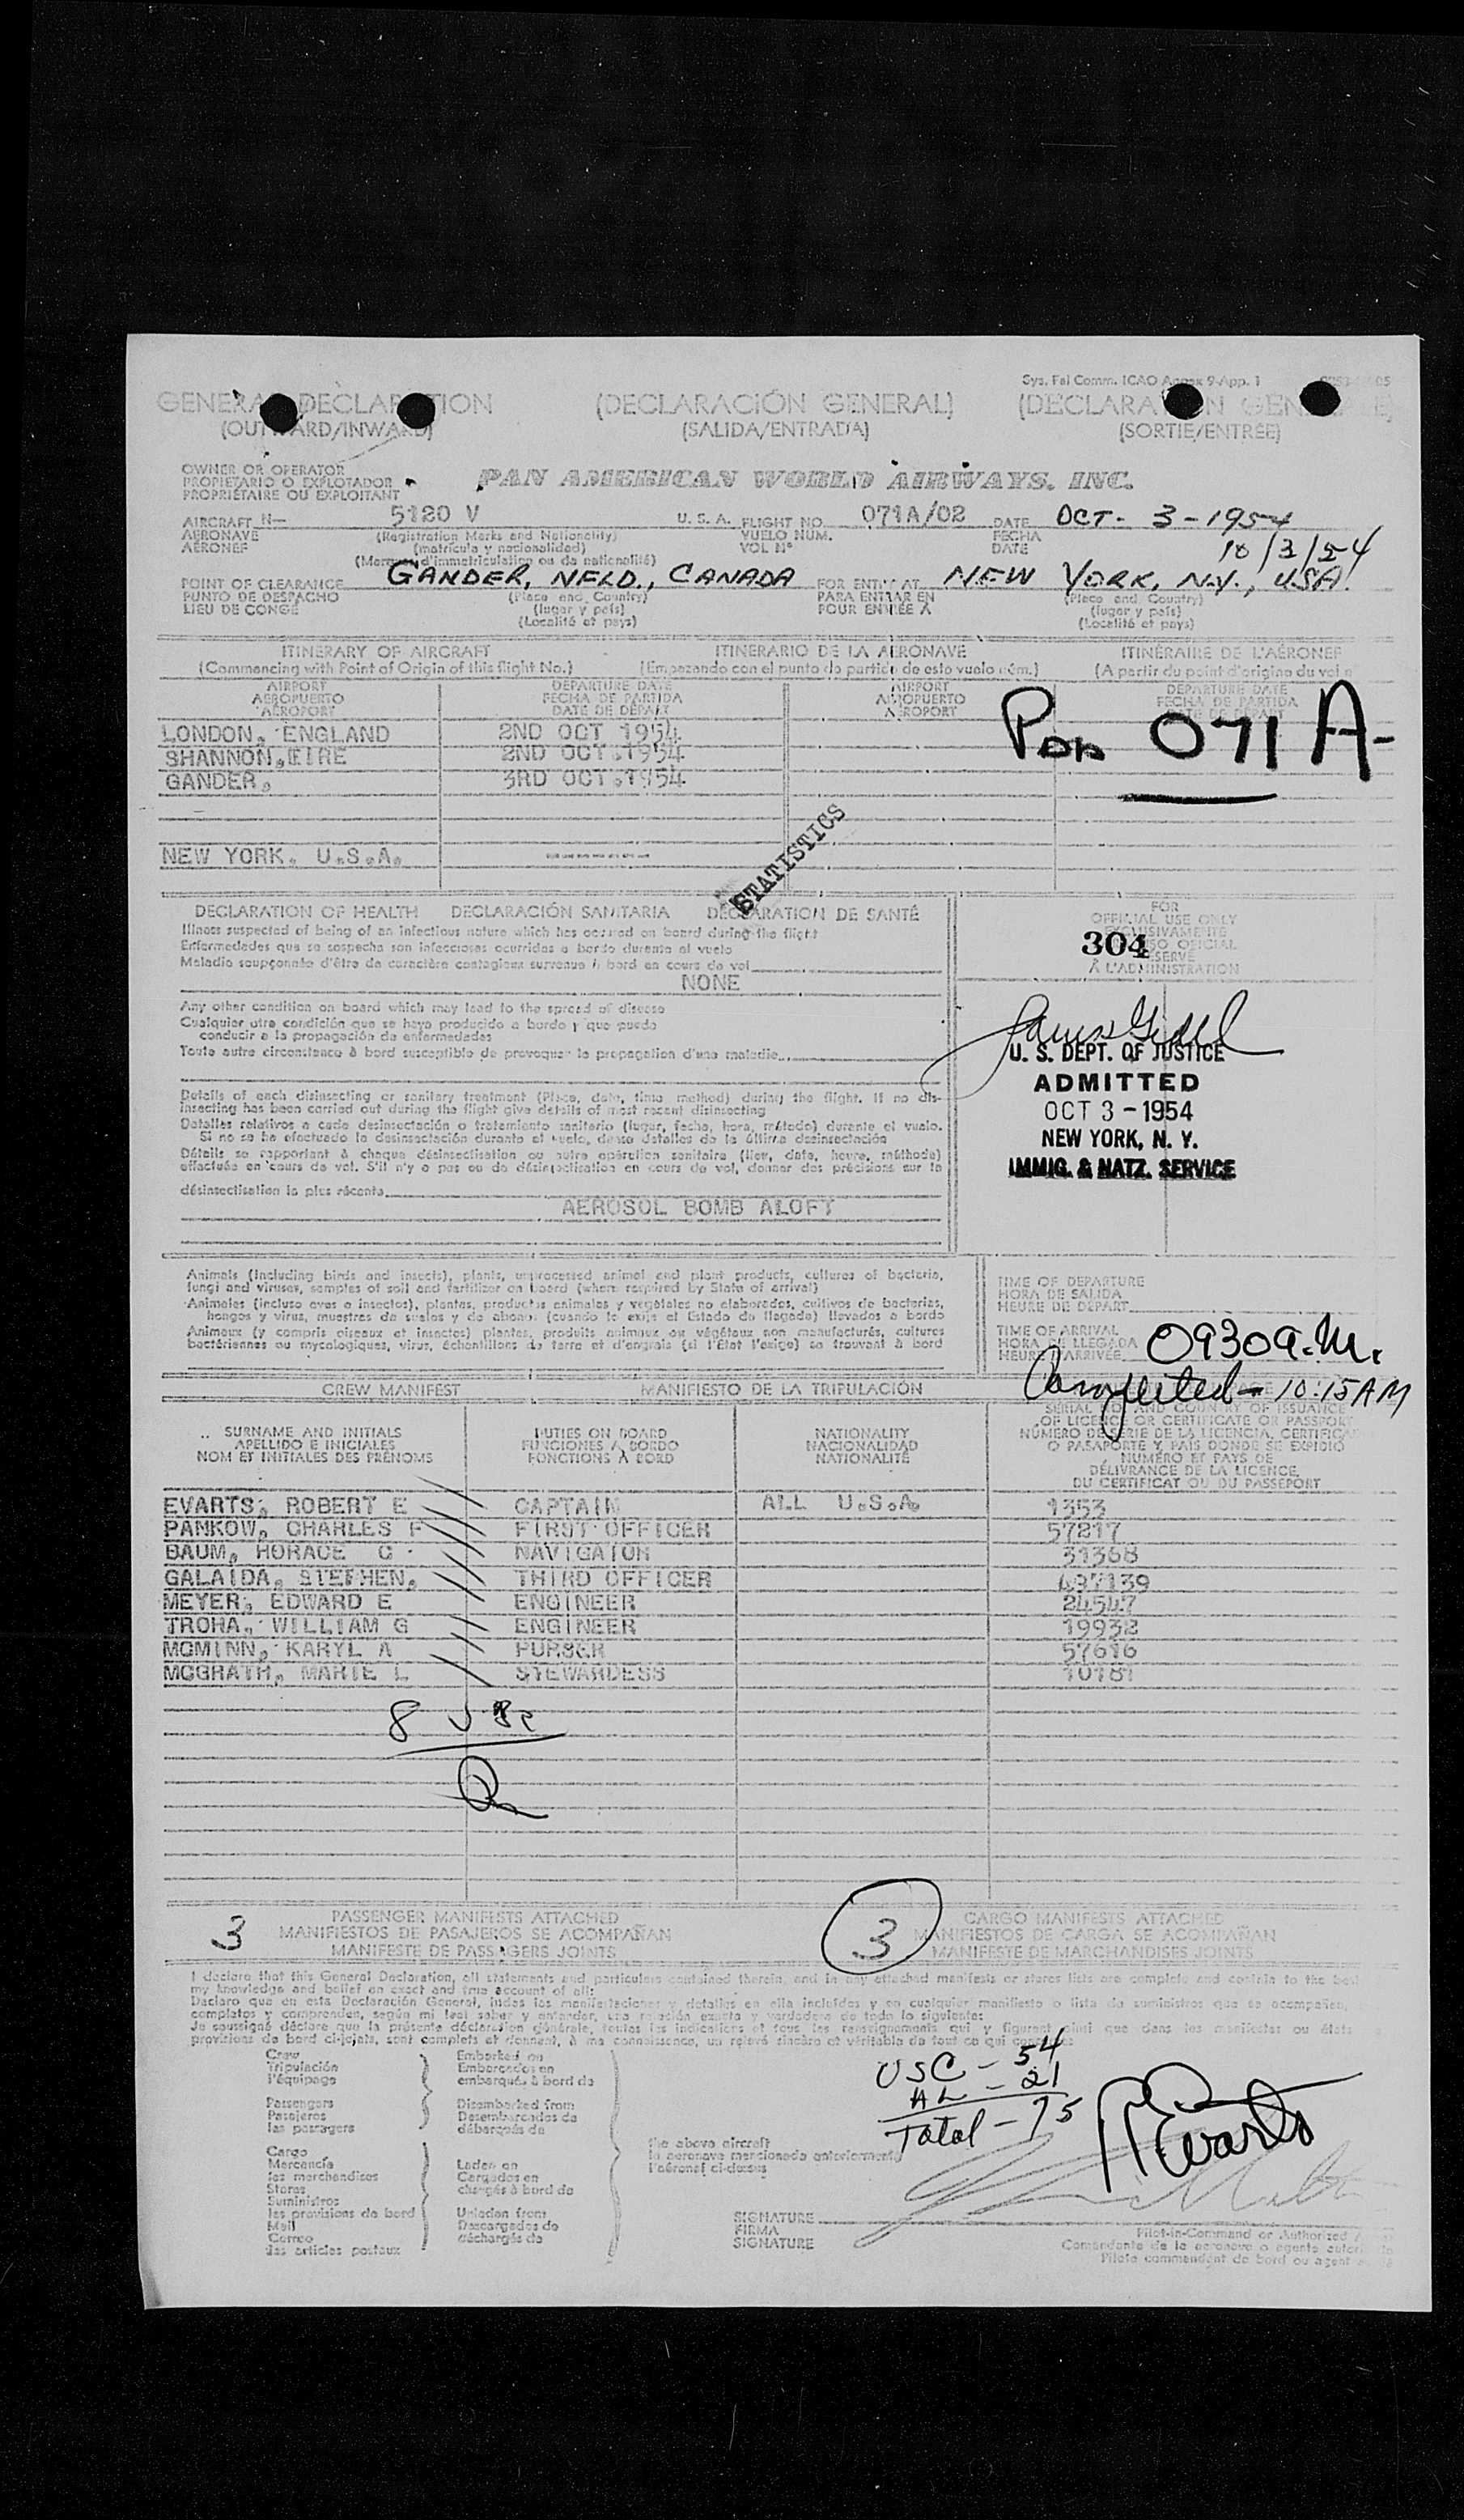 Sys. Fal Comm. ICAO Annex 9-App. 1
GENERAL DECLARATION (DECLARACIÓN GENERAL) (DECLARATION GENERALE)
(OUTWARD/INWARD) (SALIDA/ENTRADA) (SORTIE/ENTRÉE)
OWNER OR OPERATOR
PROPIETARIO O EXPLOTADOR
PROPRIÉTAIRE OU EXPLOITANT
PAN AMERICAN WORLD AIRWAYS. INC.
AIRCRAFT N— 5120 V U. S. A. FLIGHT NO. 071A/02 DATE OCT. 3-1954
AERONAVE (Registration Marks and Nationality) VUELO NUM. FECHA
AÉRONEF (matrícula y nacionalidad) VOL Nº DATE 10/3/54
(Marques d'immatriculation ou de nationalité)
POINT OF CLEARANCE GANDER, NFLD., CANADA FOR ENTRY AT NEW YORK, N.Y., USA.
PUNTO DE DESPACHO (Place and Country) PARA ENTRAR EN (Place and Country)
LIEU DE CONGÉ (lugar y país) POUR ENTRÉE À (lugar y país)
(Localité et pays) (Localité et pays)
ITINERARY OF AIRCRAFT ITINERARIO DE LA AERONAVE ITINÉRAIRE DE L'AÉRONEF
(Commencing with Point of Origin of this flight No.) (Empezando con el punto de partida de este vuelo núm.) (A partir du point d'origine du vol
AIRPORT DEPARTURE DATE AIRPORT DEPARTURE DATE
AEROPUERTO FECHA DE PARTIDA AEROPUERTO FECHA DE PARTIDA
AÉROPORT DATE DE DÉPART AÉROPORT DATE DE DÉPART
Pan 071A-
LONDON, ENGLAND 2ND OCT 1954
SHANNON, EIRE 2ND OCT.1954
GANDER, 3RD OCT.1954
NEW YORK. U.S.A. -------
STATISTICS
DECLARATION OF HEALTH DECLARACIÓN SANITARIA DÉCLARATION DE SANTÉ
Illness suspected of being of an infectious nature which has occurred on board during the flight
Enfermedades que se sospecha son infecciosas ocurridas a bordo durante el vuelo
Maladie soupçonnée d'être de caractère contagieux survenue à bord en cours de vol
NONE
Any other condition on board which may lead to the spread of disease
Cualquier otra condición que se haya producido a bordo y que pueda
conducir a la propagación de enfermedades
Toute autre circonstance à bord susceptible de provoquer la propagation d'une maladie
Details of each disinsecting or sanitary treatment (Place, date, time method) during the flight. If no dis-
insecting has been carried out during the flight give details of most recent disinsecting
Detalles relativos a cada desinsectación o tratamiento sanitario (lugar, fecha, hora, método) durante el vuelo.
Si no se ha efectuado la desinsectación durante el vuelo, dense detalles de la última desinsectación
Détails se rapportant à chaque désinsectisation ou autre opération sanitaire (lieu, date, heure, méthode)
effectuée en cours de vol. S'il n'y a pas eu de désinsectisation en cours de vol, donner des précisions sur la
désinsectisation la plus récente
AEROSOL BOMB ALOFT
FOR
OFFICIAL USE ONLY
EXCLUSIVAMENTE
304 USO OFICIAL
RÉSERVÉ
À L'ADMINISTRATION
U. S. DEPT. OF JUSTICE
ADMITTED
OCT 3 - 1954
NEW YORK, N. Y.
IMMIG. & NATZ. SERVICE
Animals (including birds and insects), plants, unprocessed animal and plant products, cultures of bacteria,
fungi and viruses, samples of soil and fertilizer on board (where required by State of arrival)
Animales (incluso aves e insectos), plantas, productos animales y vegetales no elaborados, cultivos de bacterias,
hongos y virus, muestras de suelos y de abonos (cuando lo exija el Estado de llegada) llevados a bordo
Animaux (y compris oiseaux et insectes) plantes, produits animaux ou végétaux non manufacturés, cultures
bactériennes ou mycologiques, virus, échantillons de terre et d'engrais (si l'État l'exige) se trouvant à bord
TIME OF DEPARTURE
HORA DE SALIDA
HEURE DE DÉPART
TIME OF ARRIVAL
HORA DE LLEGADA 0930a.m.
HEURE D'ARRIVÉE
Completed - 10:15 AM
CREW MANIFEST MANIFIESTO DE LA TRIPULACIÓN
SURNAME AND INITIALS DUTIES ON BOARD NATIONALITY SERIAL NO. AND COUNTRY OF ISSUANCE
APELLIDO E INICIALES FUNCIONES A BORDO NACIONALIDAD OF LICENCE OR CERTIFICATE OR PASSPORT
NOM ET INITIALES DES PRÉNOMS FONCTIONS À BORD NATIONALITÉ NÚMERO DE SERIE DE LA LICENCIA, CERTIFICA
O PASAPORTE Y PAÍS DONDE SE EXPIDIÓ
NUMÉRO ET PAYS DE
DÉLIVRANCE DE LA LICENCE,
DU CERTIFICAT OU DU PASSEPORT
EVARTS, ROBERT E CAPTAIN ALL U.S.A. 1353
PANKOW, CHARLES F FIRST OFFICER 57217
BAUM, HORACE C NAVIGATOR 31368
GALAIDA, STEPHEN, THIRD OFFICER 497139
MEYER, EDWARD E ENGINEER 24547
TROHA, WILLIAM G ENGINEER 19932
MCMINN, KARYL A PURSER 57616
MCGRATH, MARIE L STEWARDESS 10181
8 USC
3 PASSENGER MANIFESTS ATTACHED 3 CARGO MANIFESTS ATTACHED
MANIFIESTOS DE PASAJEROS SE ACOMPAÑAN MANIFIESTOS DE CARGA SE ACOMPAÑAN
MANIFESTE DE PASSAGERS JOINTS MANIFESTE DE MARCHANDISES JOINTS
I declare that this General Declaration, all statements and particulars contained therein, and in any attached manifests or stores lists are complete and contain to the best
my knowledge and belief an exact and true account of all:
Declaro que en esta Declaración General, todas las manifestaciones y detalles en ella incluídos y en cualquier manifiesto o lista de suministros que se acompañen,
completos y comprenden, según mi leal saber y entender, una relación exacta y verdadera de todo lo siguiente:
Je soussigné déclare que la présente déclaration générale, toutes les indications et tous les renseignements qui y figurent ainsi que dans les manifestes ou états
provisions de bord ci-joints, sont complets et donnent, à ma connaissance, un relevé sincère et véritable de tout ce qui concerne:
Crew Embarked on
Tripulación Embarcados en
l'équipage embarqués à bord de
Passengers Disembarked from
Pasajeros Desembarcados de
les passagers débarqués de
USC - 54
AL - 21
Total - 75
Cargo the above aircraft
Mercancía Laden on la aeronave mencionada anteriormente
les marchandises Cargados en l'aéronef ci-dessus
Stores chargés à bord de
Suministros
les provisions de bord Unladen from
Mail Descargados de
Correo déchargés de
les articles postaux
R Evarts
SIGNATURE
FIRMA
SIGNATURE
Pilot-in-Command or Authorized
Comandante de la aeronave o agente autori
Pilote commandant de bord ou agent